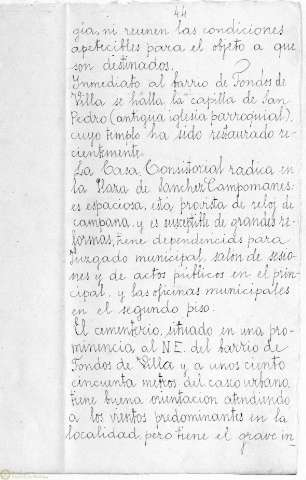 44
gia, ni reunen las condiciones
apetecibles para el objeto a que
son destinados.
Inmediato al barrio de Fondos de
Villa se halla la capilla de San
Pedro (antigua iglesia parroquial).
cuyo templo ha sido restaurado re-
cientemente.
La Casa Consistorial radica en
la Plaza de Sanchez Campomanes:
es espaciosa, esta provista de reloj de
campana, y es susceptible de grandes re-
formas, tiene dependencias para
Juzgado municipal, salon de sesio-
nes y de actos públicos en el prin-
cipal, y las oficinas municipales
en el segundo piso.
El cementerio, situado en una pro-
minencia al N.E. del barrio de
Fondos de Villa y a unos ciento
cincuenta metros del casco urbano
tiene buena orientacion atendiendo
a los vientos predominantes en la
localidad pero tiene el grave in-